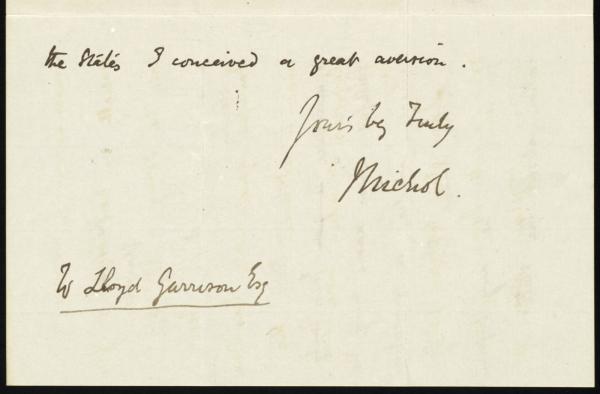 the States I conceived a great aversion.
Yours very Truly
JNichol.
W Lloyd Garrison Esq